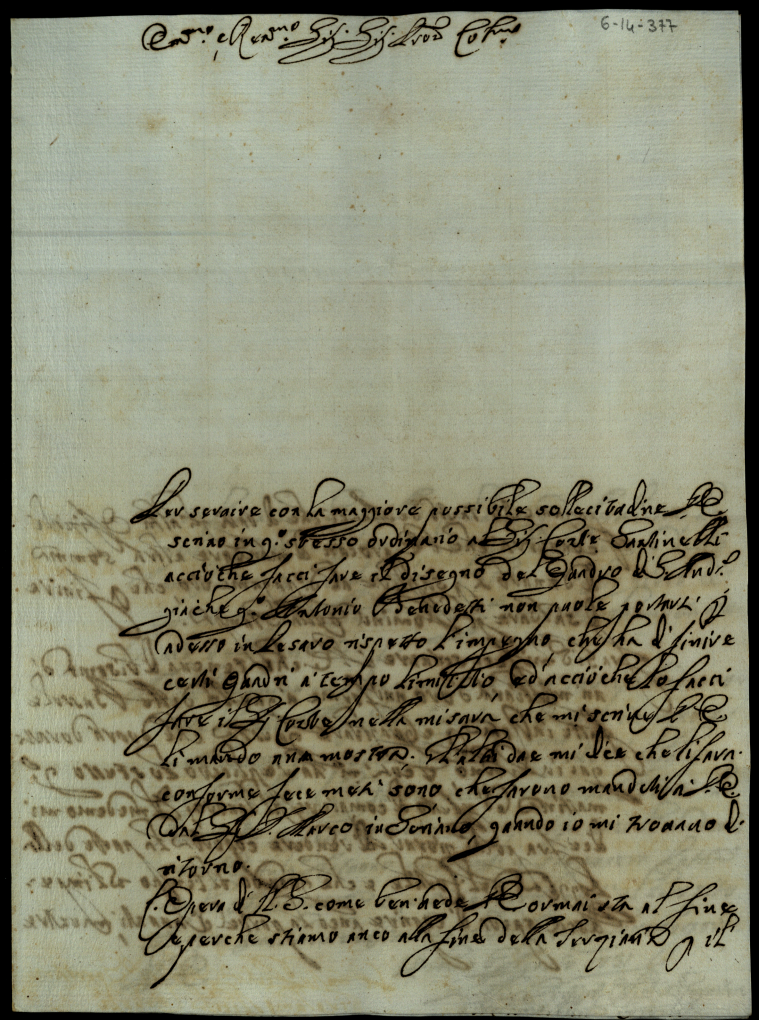 6-14-377
Em.mo e Rev.mo Sig. Sig. Pron Col.mo
Per servire con la maggiore possibile sollecitudine V.E.
scrivo in q.o stesso ordinario al Sig. Conte Santinelli
acciòche facci fare il disegno del Quadro di S. And.a
giache q.o Antonio Benedetti non puole portarsi p
adesso in Pesaro rispetto l'impegno, che ha di finire
certi Quadri a tempo limitato ed'acciòche lo facci
fare il Sig. Conte nella misura che mi scrive V.E.
li mando una mostra. che mi dice che li sara
conforme fece mesi sono che furono mandati a V.E.
dal Sig. D. Marco in quando io mi trovavo di
ritorno.
L'Opera di N.S. come ben vede V.E. ormai sta al fine
e perche stiamo anco alla fine della p il